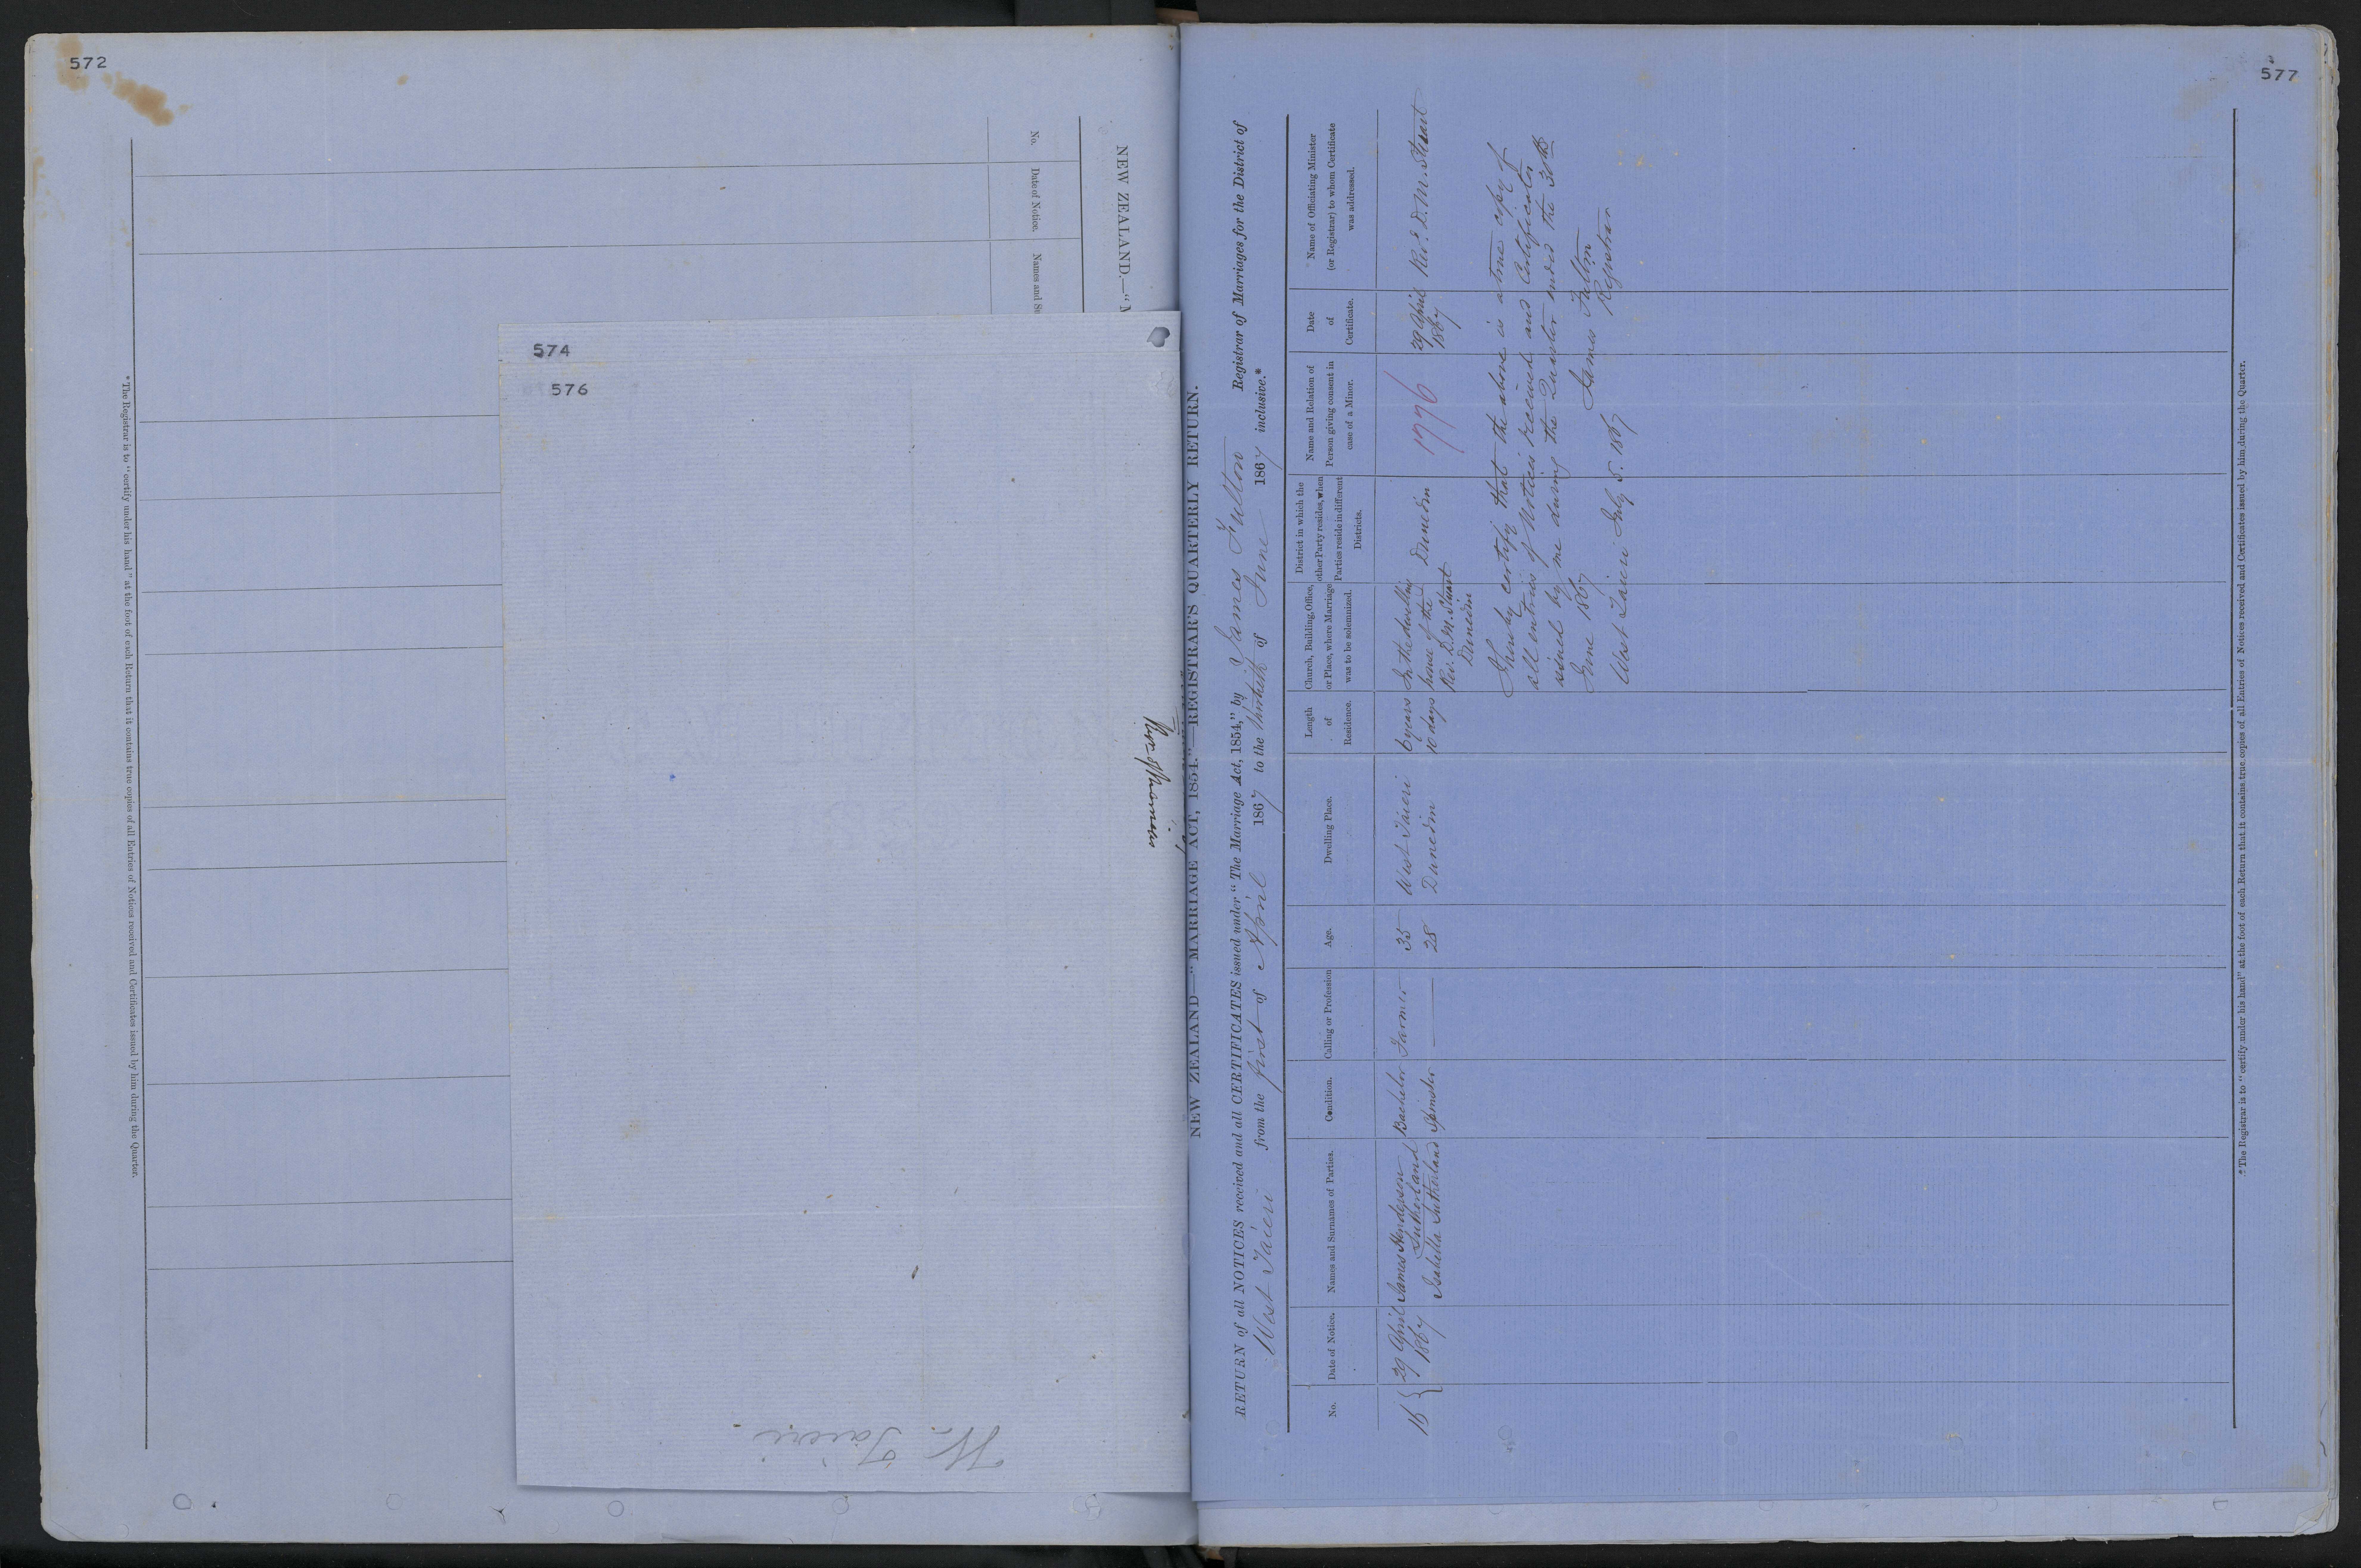 572
No.
Date of Notice.
Names and Su
NEW ZEALAND.—"
* The Registrar is to "certify under his hand" at the foot of each Return that it contains true copies of all Entries of Notices received and Certificates issued by him during the Quarter.
574
576
W. Taieri
577
NEW ZEALAND—"MARRIAGE ACT, 1854."—REGISTRAR'S QUARTERLY RETURN.
RETURN of all NOTICES received and all CERTIFICATES issued under "The Marriage Act, 1854," by James Fulton Registrar of Marriages for the District of
West Taieri from the first of April 1867 to the thirtieth of June 1867 inclusive.*
No.
Date of Notice.
Names and Surnames of Parties.
Condition.
Calling or Profession
Age.
Dwelling Place.
Length
of
Residence.
Church, Building, Office,
or Place, where Marriage
was to be solemnized.
District in which the
other Party resides, when
Parties reside in different
Districts.
Name and Relation of
Person giving consent in
case of a Minor.
Date
of
Certificate.
Name of Officiating Minister
(or Registrar) to whom Certificate
was addressed.
16
29 April
1867
James Henderson
Sutherland
Isabella Sutherland
Bachelor
Spinster
Farmer
35
28
West Taieri
Dunedin
6 years
10 days
In the dwelling
house of the
Rev. D. M. Stuart
Dunedin
Dunedin
1776
29 April
1867
Rev. D. M. Stuart
I hereby certify that the above is a true copy of
all entries of Notices received and Certificates
issued by me during the Quarter ended the 30th
June 1867
James Fulton
West Taieri July 5. 1867 Registrar
* The Registrar is to "certify under his hand" at the foot of each Return that it contains true copies of all Entries of Notices received and Certificates issued by him during the Quarter.